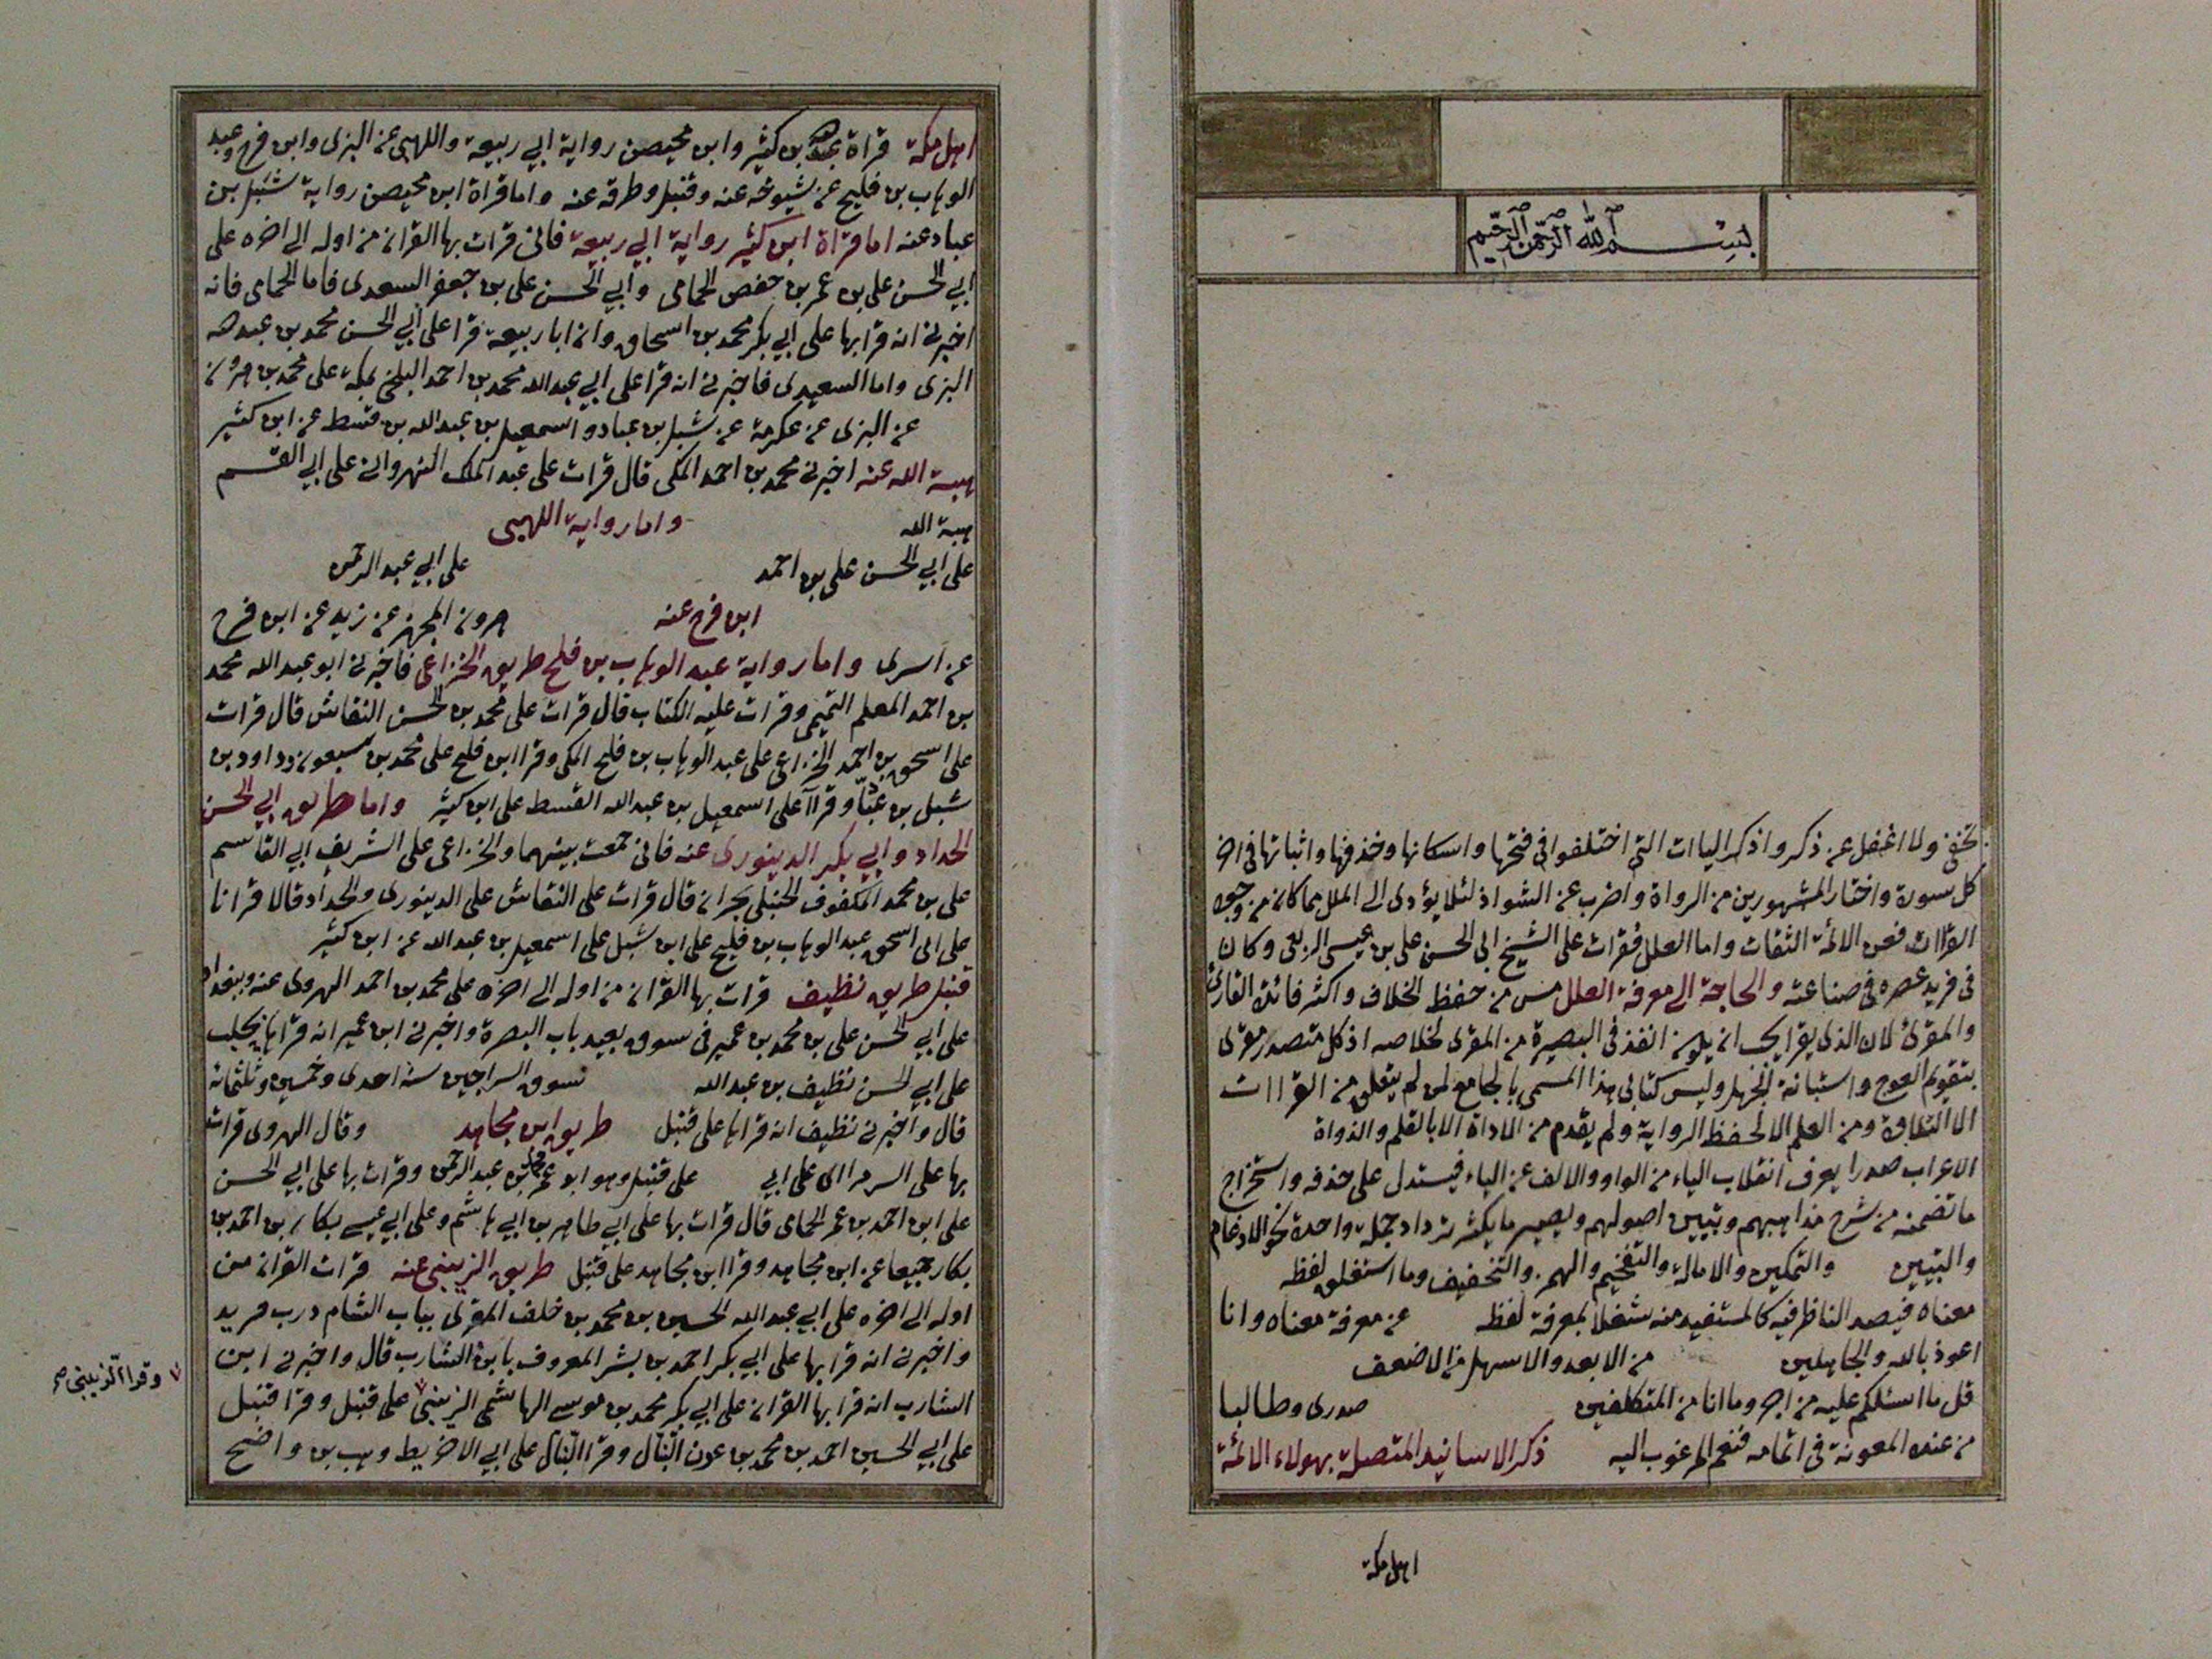 بسم الله الرحمن الرحيم
تخفى ولا اغفل عن ذكر واذكر الياات التي اختلفوا في فتحها واسكانها وحذفها واثباتها في اخر
كل سورة واختار المشهورين من الرواة واضرب عن الشواذ لئلا يؤدى الى الملل مما كان من وجوه
القراات فعن الائمة الثقات واما العلل فقرات على الشيخ ابى الحسن على بن عيسى الربعى وكان
فى فريد عصره فى صناعته والحاجة الى معرفة العلل من حفظ الخلاف واكثر فائدة القارئ
والمقرئ لان الذى يقرا يجب ان يكون انفذ فى البصيرة من المقرى اذ كل متصدر مقرى
بتقويم العوج واستبانة الجهل وليس كتابى هذا المسمى بالجامع لمن لم يتعلق من القراات
الا التلاوة ومن العلم الا لحفظ الرواية ولم يقدم من الاداة الا بالقلم والدواة
الاعراب صدرا يعرف انقلاب الياء من الواو والالف عن الياء فيستدل على حذفه واستخراج
ما تضمنه من شرح مذاهبهم وتبيين اصولهم ويصير ما يكثر ترداد جملة واحدة نحو الادغام
والتبيين والتمكين والامالة والتفخيم والهمز والتخفيف وما استغلق لفظه
معناه فيصد الناظر فيه كالمستفيد منه شغلا بمعرفة لفظه عن معرفة معناه وانا
اعوذ بالله والجاهلين من الابعد والاسهل من الاضعف
قل ما اسئلكم عليه من اجر وما انا من المتكلفين صدرى وطالبا
من عنده المعونة فى اتمامه فنعم المرغوب اليه ذكر الاسانيد المتصلة بهولاء الائمة
اهل مكة
اهل مكة قراة عبد الله بن كثير وابن محيصن رواية ابي ربيعة واللهبى عن البزى وابن فرح وعبد
الوهاب بن فليح عن شيوخه عنه وقنبل وطرقه عنه واما قراة ابن محيصن رواية شبل بن
عباد عنه اما قراة ابن كثير رواية ابي ربيعة فانى قرات بها القران من اوله الى اخره على
ابي الحسن على بن عمر بن حفص الحمامى وابي الحسن على بن جعفر السعيدى فاما الحمامى فانه
اخبرنى انه قرا بها على ابي بكر محمد بن اسحاق وان ابا ربيعة قرا على ابي الحسن محمد بن عبد الله
البزى واما السعيدى فاخبرنى انه قرا على ابي عبد الله محمد بن احمد البلخى بمكة على محمد بن هرون
عن البزى عن عكرمة عن شبل بن عباد واسمعيل بن عبد الله بن قسط عن ابن كثير
هبة الله عنه اخبرنى محمد بن احمد المكى قال قرات على عبد الملك النهروانى على ابي القسم
هبة الله واما رواية اللهبى
على ابي الحسن على بن احمد على ابي عبد الرحمن
ابن فرح عنه هرون المجهز عن زيد عن ابن فرح
عن اسرى واما رواية عبد الوهاب بن فلح طريق الخزاعى فاخبرنى ابو عبد الله محمد
بن احمد المعلم التميمى وقرات عليه الكتاب قال قرات على محمد بن الحسن النقاش قال قرات
على اسحق بن احمد الخزاعى على عبد الوهاب بن فلح المكى وقرا ابن فلح على محمد بن سبعون وداود بن
شبل بن عباد وقراا على اسمعيل بن عبد الله القسط على ابن كثير واما طريق ابي الحسن
الحداد وابي بكر الدينورى عنه فانى جمعت بينهما والخزاعى على الشريف ابي القاسم
على بن محمد المكفوف الحنبلى بحران قال قرات على النقاش على الدينورى والحداد قالا قرانا
على ابى اسحق عبد الوهاب بن فليح على ابن شبل على اسمعيل بن عبد الله عن ابن كثير
قنبل طريق نظيف قرات بها القران من اوله الى اخره على محمد بن احمد الهروى عنه وببغداد
على ابي الحسن على بن محمد بن عمير فى سوق بعيد باب البصرة واخبرنى ابن عمير انه قرا بها بحلب
على ابي الحسن نظيف بن عبد الله سوق السراجين سنة احدى وخمسين وثلثمائة
قال واخبرنى نظيف انه قرا بها على قنبل طريق ابن مجاهد وقال الهروى قرات
بها على على ابي على قنبل وهو ابو عمر محمد بن عبد الرحمن وقرات بها على ابي الحسن
على ابن احمد بن عمر الحمامى قال قرات بها على ابي طاهر بن ابي هاشم وعلى ابي عيسى بكار بن احمد بن
بكار جميعا عن ابن مجاهد وقرا ابن مجاهد على قنبل طريق الزينبى عنه قرات القران من
اوله الى اخره على ابي عبد الله الحسين بن محمد بن خلف المقرى بباب الشام درب فريد
واخبرنى انه قرا بها على ابي بكر احمد بن بشر المعروف بابن الشارب قال واخبرنى ابن
الشارب انه قرا بها القران على ابي بكر محمد بن موسى الهاشمى الزينبى على قنبل وقرا قنبل
على ابي الحسين احمد بن محمد بن عون النبال وقرا النبال على ابي الاخريط وهب بن واضح
وقرا الزينبى صح